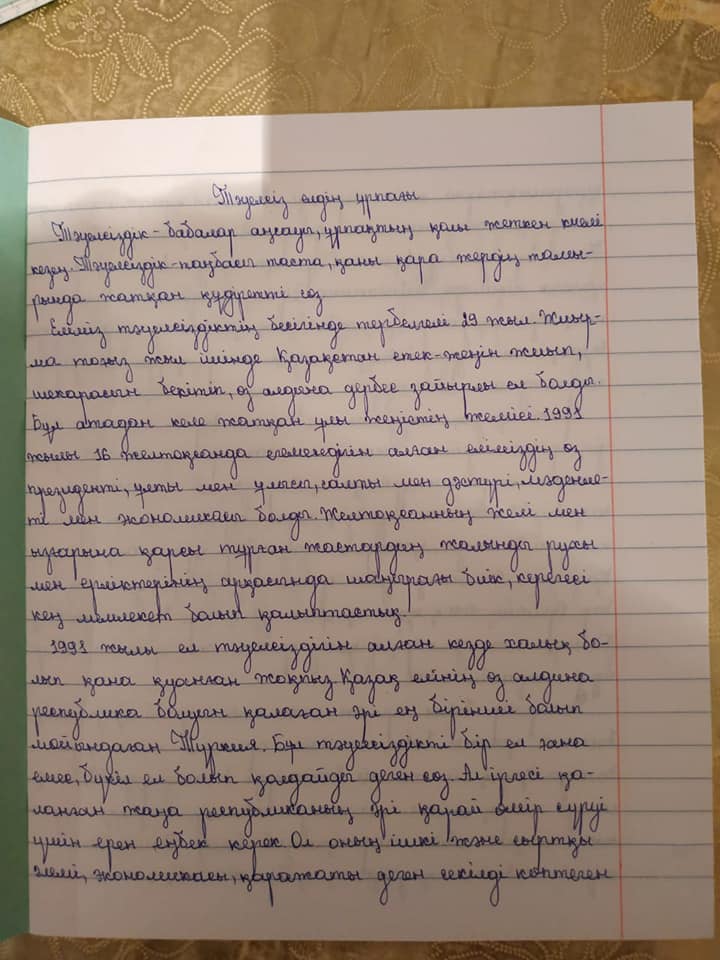 Тәуелсіз елдің ұрпағы
Тәуелсіздік - бабалар аңсауы, ұрпақтың қолы жеткен киелі
кезең. Тәуелсіздік - таңбасы таста, қаны қара жердің тамы-
рында жатқан құдіретті сөз
Еліміз тәуелсіздіктің бесігінде тербелгелі 29 жыл. Жиыр-
ма тоғыз жыл ішінде Қазақстан етек-жеңін жиып,
шекарасын бекітіп, өз алдына дербес зайырлы ел болды.
Бұл атадан келе жатқан ұлы жеңістің жемісі. 1991
жылы 16 желтоқсанда егемендігін алған еліміздің өз
президенті, ұлты мен ұлысы, салты мен дәстүрі, мәдение-
ті мен экономикасы болды. Желтоқсанның желі мен
ызғарына қарсы тұрған жастардың жалынды рухы
мен ерліктерінің арқасында шаңырағы биік, керегесі
кең мемлекет болып қалыптастық.
1991 жылы ел тәуелсіздігін алған кезде халық бо-
лып қана қуанған жоқпыз. Қазақ елінің өз алдына
республика болуын қалаған әрі ең бірінші болып
мойындаған Түркия. Бұл тәуелсіздікті бір ел ғана
емес, бүкіл ел болып қолдайды деген сөз. Ал іргесі қа-
ланған жаңа республиканың әрі қарай өмір сүруі
үшін ерен еңбек керек. Ол оның ішкі және сыртқы
әлемі, экономикасы, қаражаты деген секілді көптеген